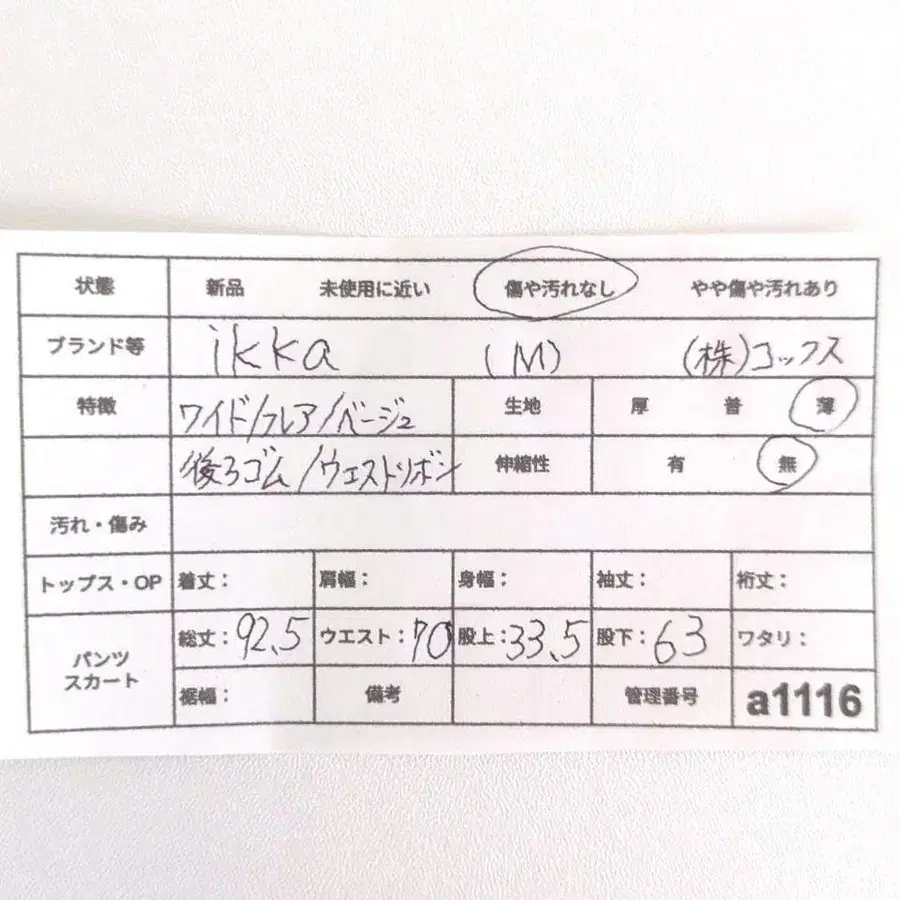 状態 新品 未使用に近い 傷や汚れなし やや傷や汚れあり
ブランド等 ikka (M) (株)コックス
特徴 ワイド/フレア/ベージュ 生地 厚 普 薄
/後ろゴム/ウエストリボン 伸縮性 有 無
汚れ・傷み
トップス・OP 着丈： 肩幅： 身幅： 袖丈： 裄丈：
パンツ スカート 総丈：92.5 ウエスト：70 股上：33.5 股下：63 ワタリ：
裾幅： 備考 管理番号 a1116